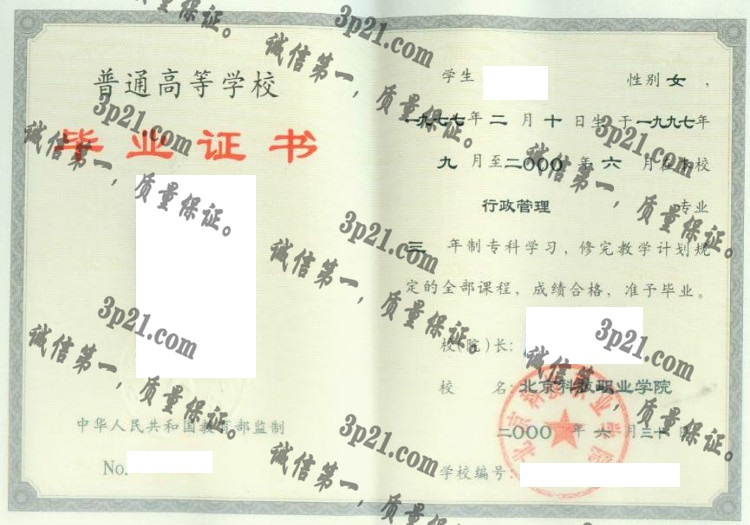 普通高等学校
毕业证书
中华人民共和国教育部监制
No.
学生 性别 女 ，
一九七七年 二 月 十 日生于一九九七年
九 月至二〇〇〇年 六 月在本校
行政管理 专业
三 年制专科学习，修完教学计划规
定的全部课程，成绩合格，准予毕业。
校（院）长：
校 名：北京科技职业学院
二〇〇〇年 六 月三十日
学校编号：
北京科技职业学院
3p21.com
诚信第一，质量保证。
3p21.com
诚信第一，质量保证。
3p21.com
诚信第一，质量保证。
3p21.com
诚信第一，质量保证。
3p21.com
诚信第一，质量保证。
3p21.com
诚信第一，质量保证。
3p21.com
诚信第一，质量保证。
质量保证。